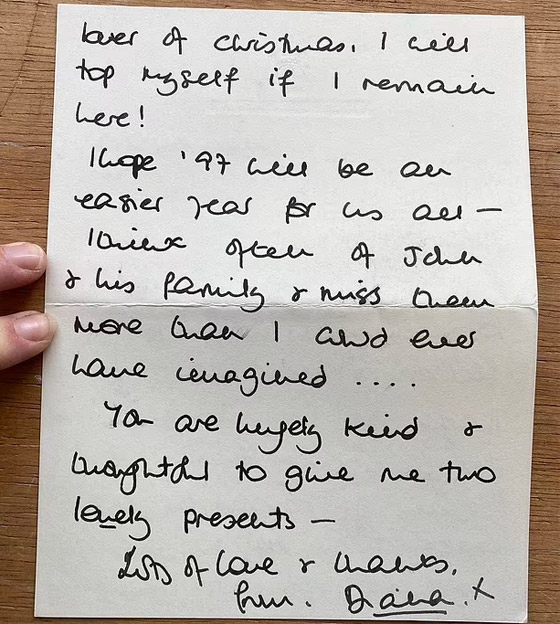 lover of christmas. I will
top myself if I remain
here!
I hope '97 will be an
easier year for us all –
I think often of John
& his family & miss them
more than I could ever
have imagined ....
You are hugely kind &
thoughtful to give me two
lovely presents –
Lots of love & thanks,
from. Diana. x